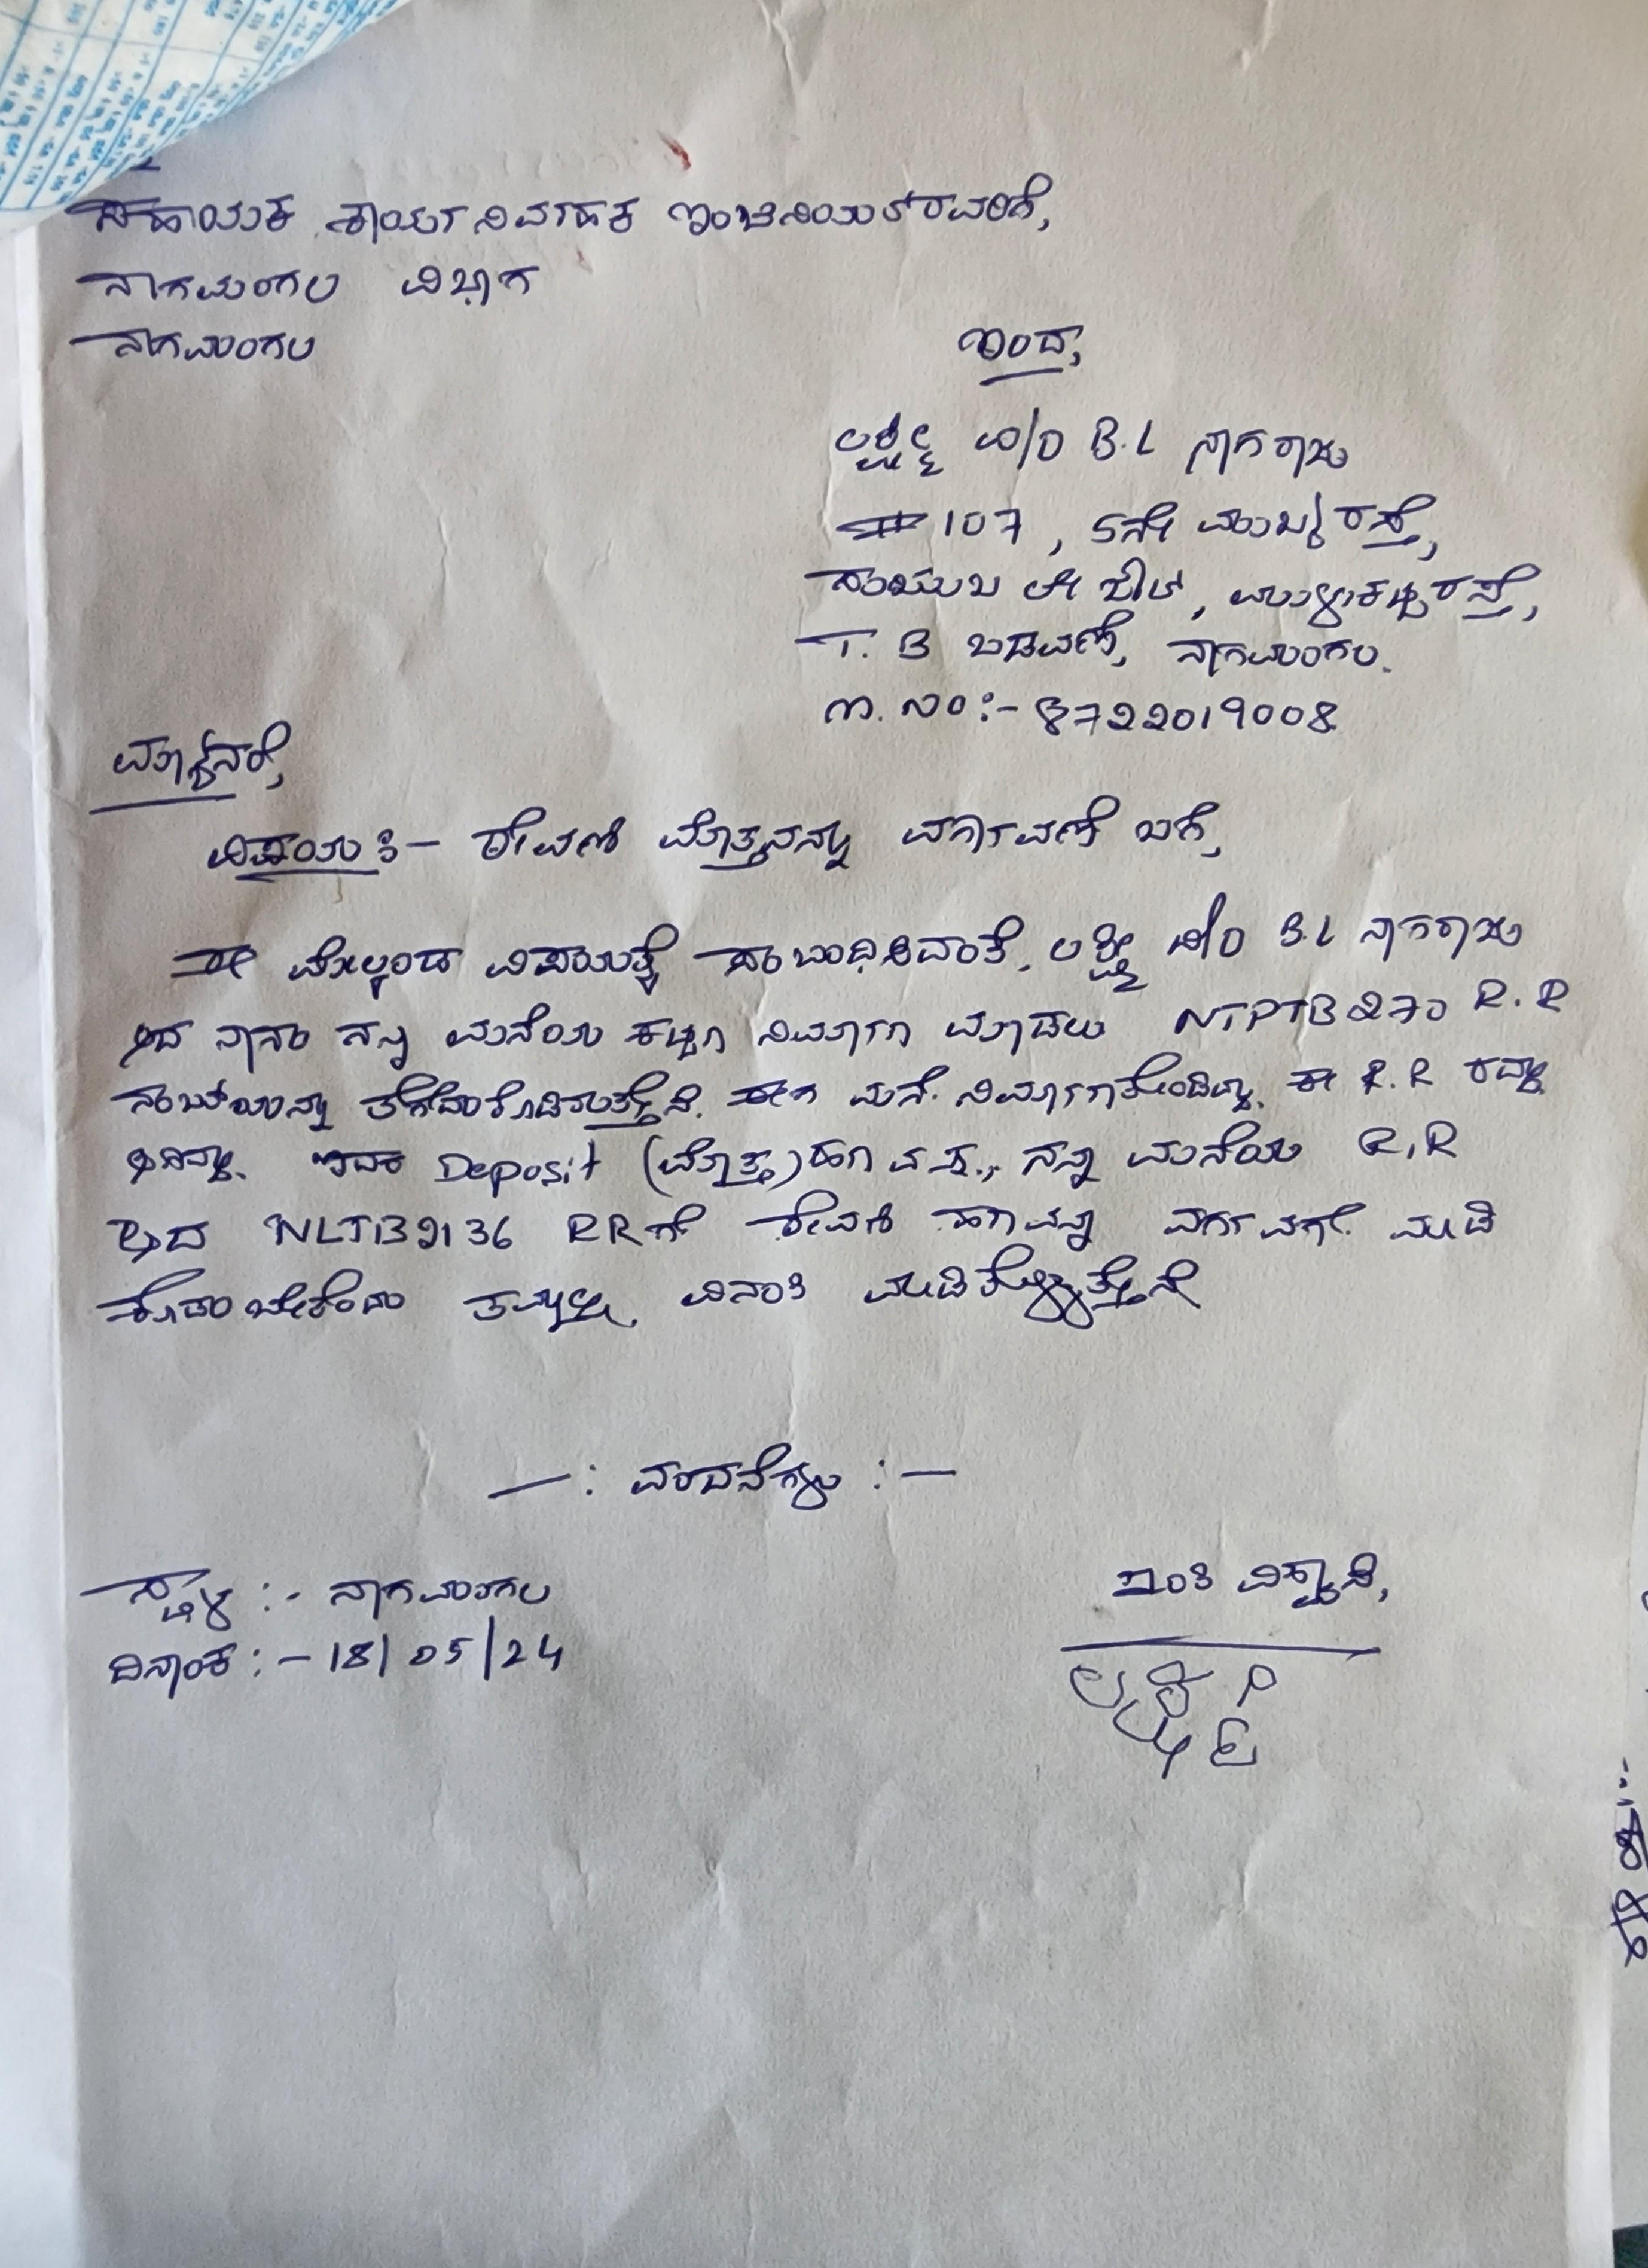 ಸಹಾಯಕ ಕಾರ್ಯನಿರ್ವಾಹಕ ಇಂಜಿನಿಯರ್ ರವರಿಗೆ,
ನಾಗಮಂಗಲ ವಿಭಾಗ
ನಾಗಮಂಗಲ
ಇಂದ,
ಲಕ್ಷ್ಮೀ W/O B.L ನಾಗರಾಜು
# 107, 5ನೇ ಮುಖ್ಯರಸ್ತೆ,
ಲೇ ಔಟ್, ಮುಳುಕಟ್ಟರಸ್ತೆ,
T. B ಬಡಾವಣೆ, ನಾಗಮಂಗಲ.
ಮೊ. ನಂ:- 8722019008
ಮಾನ್ಯರೆ,
ವಿಷಯ :- ಠೇವಣಿ ಮೊತ್ತವನ್ನು ವರ್ಗಾವಣೆ ಬಗ್ಗೆ,
ಈ ಮೇಲ್ಕಂಡ ವಿಷಯಕ್ಕೆ ಸಂಬಂಧಿಸಿದಂತೆ, ಲಕ್ಷ್ಮೀ W/O B.L ನಾಗರಾಜು
ಆದ ನಾನು ನನ್ನ ಮನೆಯ ಕಟ್ಟಡ ನಿರ್ಮಾಣ ಮಾಡಲು NTPTB270 R.R
ನಂಬರ್‌ಯನ್ನು ತೆಗೆದುಕೊಂಡಿರುತ್ತೇನೆ. ಈಗ ಮನೆ ನಿರ್ಮಾಣಗೊಂಡಿದ್ದು, ಈ R.R ರದ್ದು
ಆಗಿದ್ದು. ಇದರ Deposit (ಮೊತ್ತ) ಹಣವನ್ನು, ನನ್ನ ಮನೆಯ R.R
ಆದ NLTB9136 RRಗೆ ಠೇವಣಿ ಹಣವನ್ನು ವರ್ಗಾವಣೆ ಮಾಡಿ
ಕೊಡಬೇಕೆಂದು ತಮ್ಮಲ್ಲಿ ವಿನಂತಿ ಮಾಡಿಕೊಳ್ಳುತ್ತೇನೆ
—: ವಂದನೆಗಳು :—
ಸ್ಥಳ :- ನಾಗಮಂಗಲ
ಇಂತಿ ವಿಶ್ವಾಸಿ,
ದಿನಾಂಕ :- 18/05/24
ಲಕ್ಷ್ಮಿ